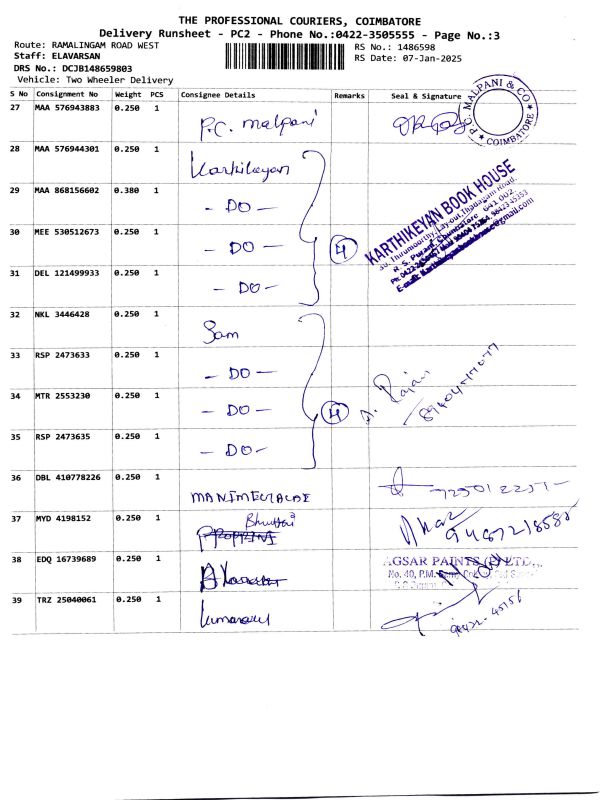 THE PROFESSIONAL COURIERS, COIMBATORE
Delivery Runsheet - PC2 - Phone No.:0422-3505555 - Page No.:3
Route: RAMALINGAM ROAD WEST
Staff: ELAVARSAN
DRS No.: DCJB148659803
Vehicle: Two Wheeler Delivery
RS No.: 1486598
RS Date: 07-Jan-2025
S No Consignment No Weight PCS Consignee Details Remarks Seal & Signature
27 MAA 576943883 0.250 1 P.C. Malpani
P.C. MALPANI & CO
COIMBATORE
28 MAA 576944301 0.250 1 Karthikeyan
29 MAA 868156602 0.380 1 - DO -
30 MEE 530512673 0.250 1 - DO - 4
31 DEL 121499933 0.250 1 - DO -
KARTHIKEYAN BOOK HOUSE
32 NKL 3446428 0.250 1 Sam
33 RSP 2473633 0.250 1 - DO -
34 MTR 2553230 0.250 1 - DO - 4 Rajan
35 RSP 2473635 0.250 1 - DO -
36 DBL 410778226 0.250 1
37 MYD 4198152 0.250 1
38 EDQ 16739689 0.250 1
AGSAR PAINTS (P) LTD.,
No. 40, P.M.
39 TRZ 25040061 0.250 1